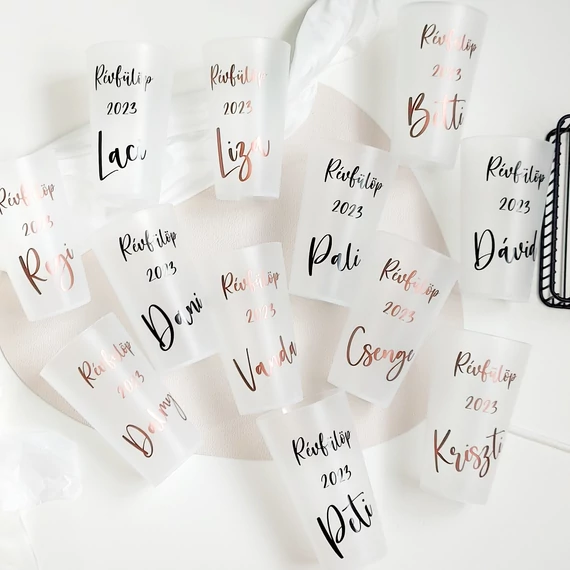 Révfülöp
2023
Laci
Révfülöp
2023
Liza
Révfülöp
2023
Betti
Révfülöp
2023
Regi
Révfülöp
2023
Dani
Révfülöp
2023
Pali
Révfülöp
2023
Dávid
Révfülöp
2023
Vanda
Révfülöp
2023
Csenge
Révfülöp
2023
Dalmy
Révfülöp
2023
Péti
Révfülöp
2023
Kriszti